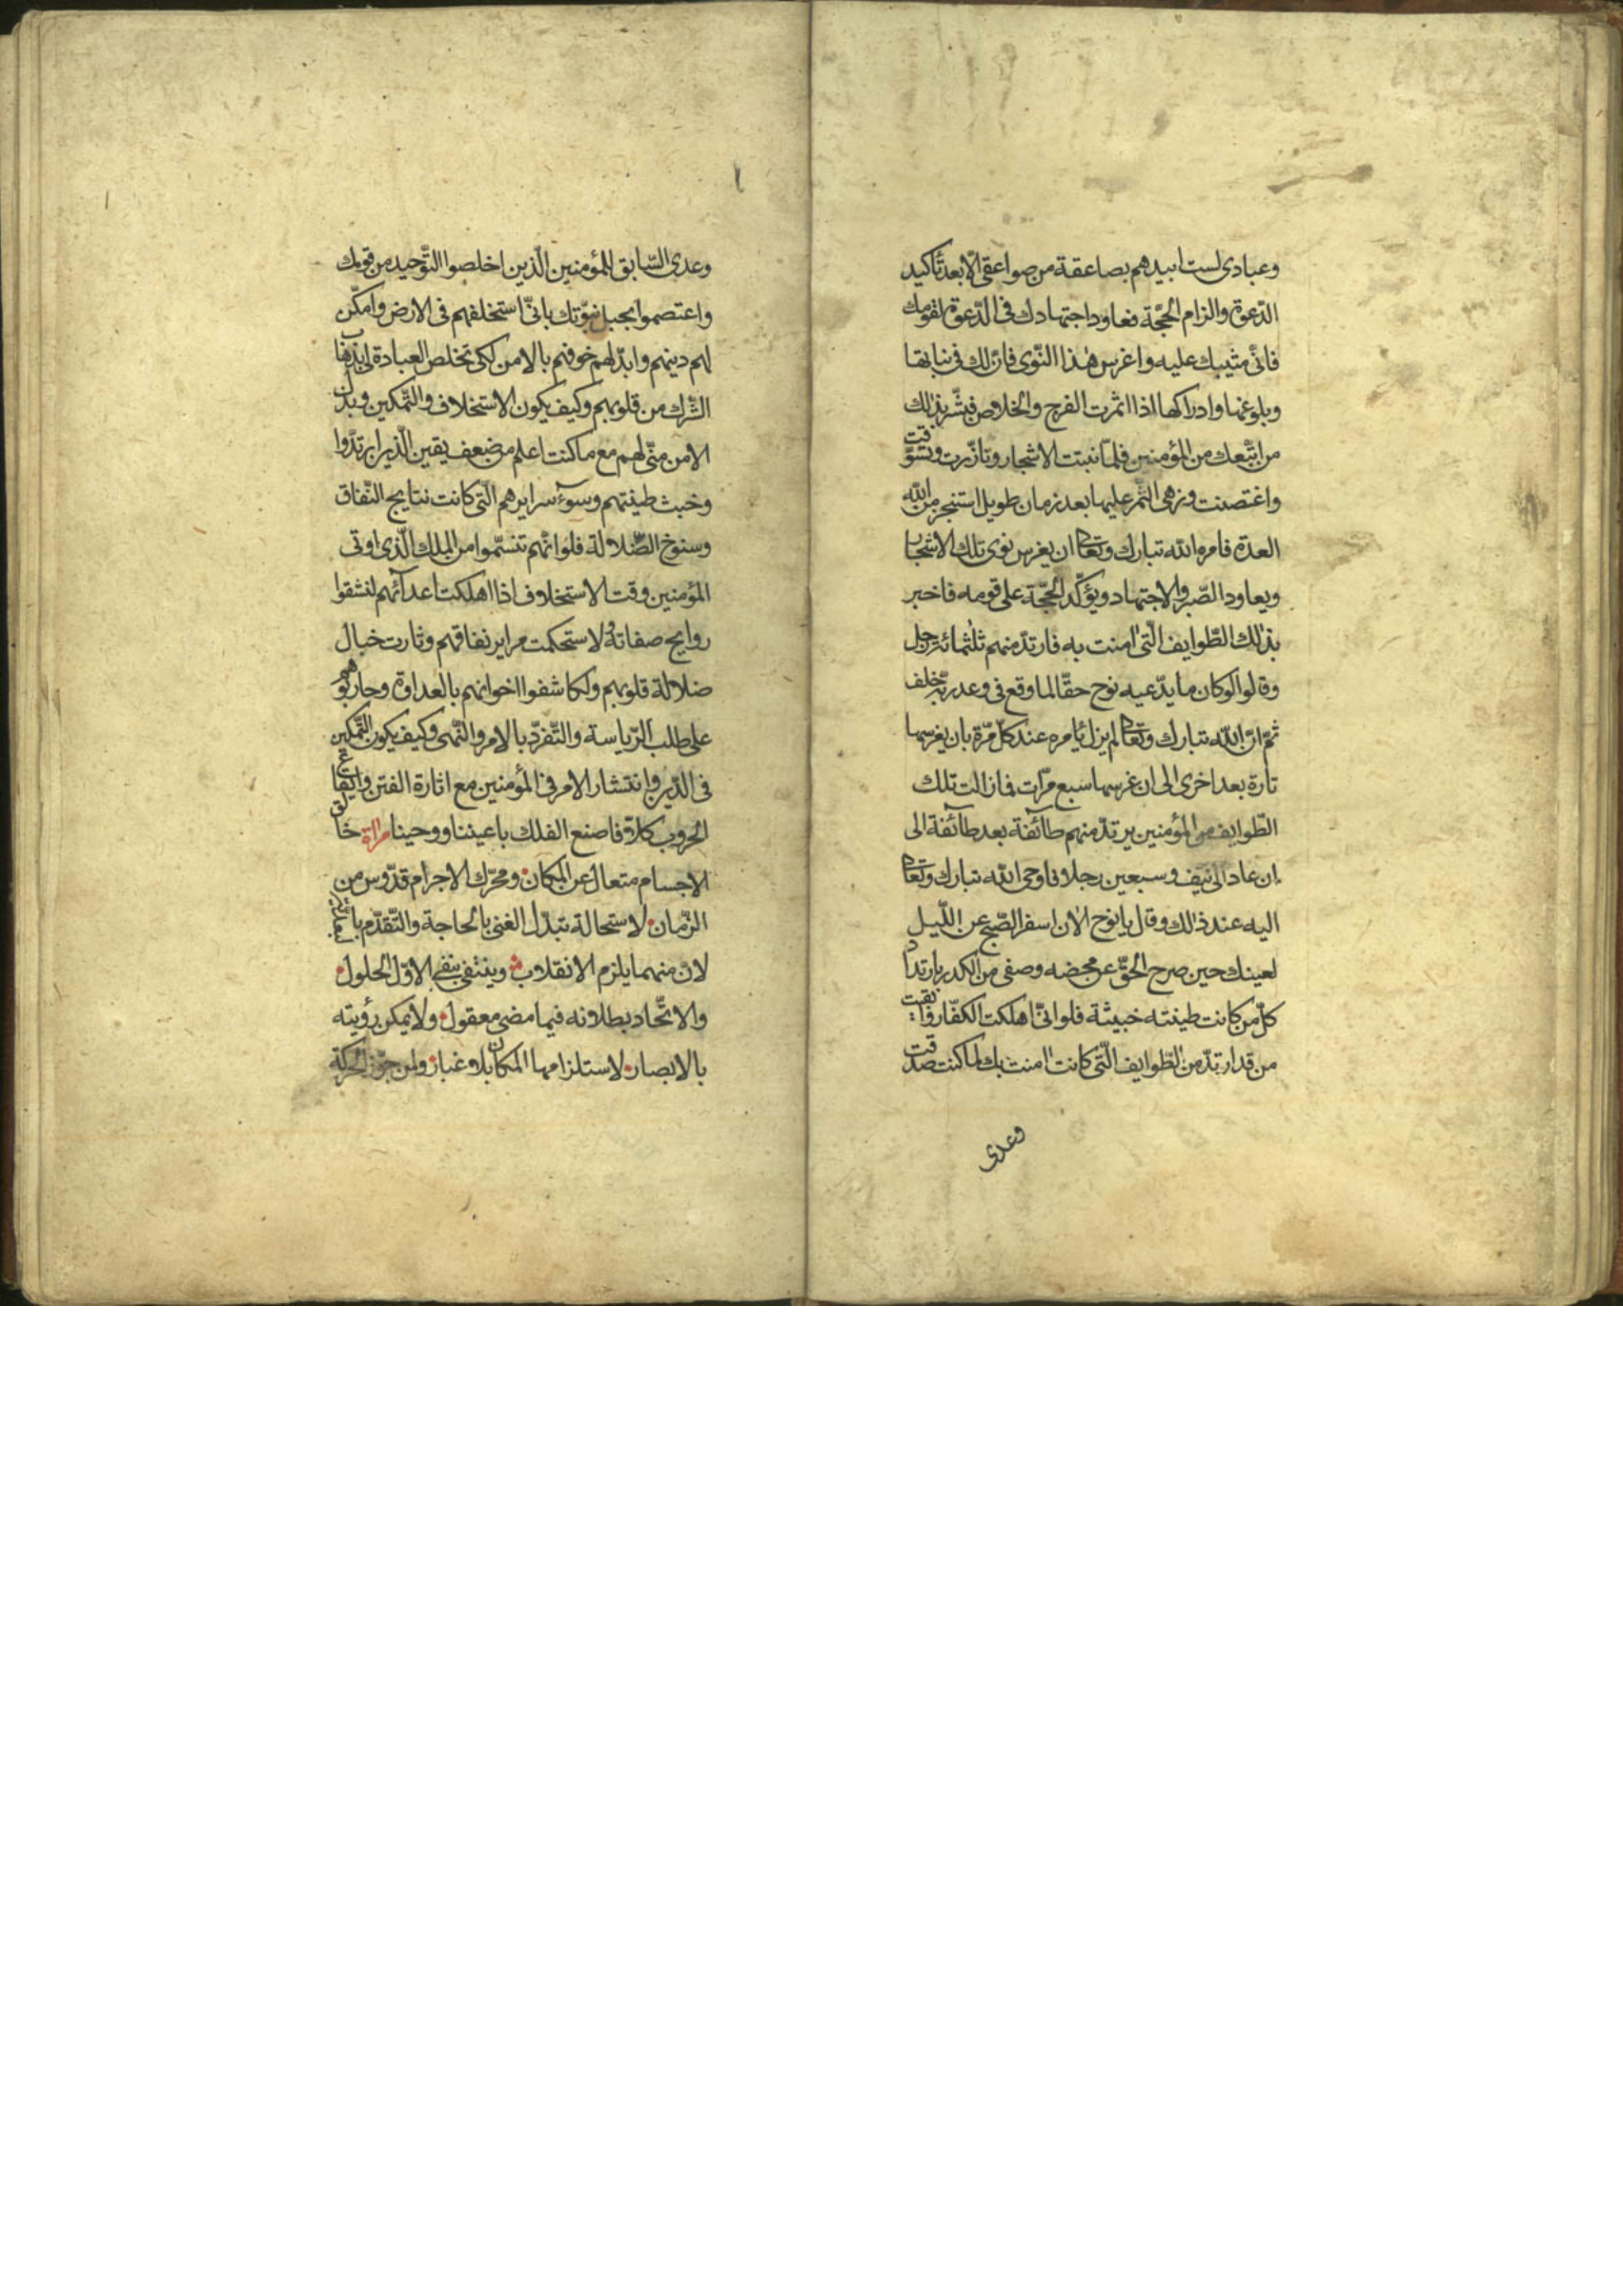 وعبادى لست ابيدهم بصاعقة من صواعقى الّا بعد تأكيد
الدّعوة والزام الحجّة فعاود اجتهادك فى الدّعوة لقومك
فانّى مثيبك عليه واغرس هٰذا النّوى فانّ لك فى نباتها
وبلوغها وادراكها اذا اثمرت الفرج والخلاص فبشّر بذٰلك
من اتّبعك من المؤمنين فلمّا نبتت الاشجار وتازّرت وتسوّقت
واغتصنت وزهى الثّمر عليها بعد زمان طويل استنجز من اللّه
العدة فامره اللّه تبارك وتعالى ان يغرس نوى تلك الاشجار
ويعاود الصّبر والاجتهاد ويؤكّد الحجّة على قومه فاخبر
بذٰلك الطّوايف الّتى اٰمنت به فارتدّ منهم ثلٰثمائة رجل
وقالوا لو كان ما يدّعيه نوح حقّا لما وقع فى وعد ربّه خلف
ثمّ انّ اللّه تبارك وتعالى لم يزل يأمره عند كلّ مرّة بان يغرسها
تارة بعد اخرى الى ان غرسها سبع مرّات فمازالت تلك
الطّوايف من المؤمنين يرتدّ منهم طآئفة بعد طآئفة الى
ان عاد الى نيّف وسبعين رجلا فاوحى اللّه تبارك وتعالى
اليه عند ذٰلك وقال يا نوح الاٰن اسفر الصّبح عن اللّيل
لعينك حين صرح الحقّ عن محضه وصفى من الكدر بارتداد
كلّ من كانت طينته خبيثة فلو انّى اهلكت الكفّار وابقيت
من قد ارتدّ من الطّوايف الّتى كانت اٰمنت بك لما كنت صدقت
وعدى
وعدى السّابق للمؤمنين الّذين اخلصوا التّوحيد من قومك
واعتصموا بحبل نبوّتك بانّى استخلفهم فى الارض وامكّن
لهم دينهم وابدّلهم خوفهم بالامن لكى تخلص العبادة لى بذهاب
الشّرك من قلوبهم وكيف يكون الاستخلاف والتّمكين وبدل
الامن منّى لهم مع ما كنت اعلم من ضعف يقين الّذين ارتدّوا
وخبث طينتهم وسوٓء سرايرهم الّتى كانت نتايج النّفاق
وسنوخ الضّلالة فلو انّهم تنسّموا من الملك الّذى اوتى
المؤمنين وقت الاستخلاف اذا اهلكت اعدآئهم لنشقوا
روايح صفاته ولاستحكمت مراير نفاقهم وثارت خبال
ضلالة قلوبهم ولكاشفوا اخوانهم بالعداوة وحاربوهم
على طلب الرّياسة والتّفرّد بالامر والنّهى وكيف يكون التّمكين
فى الدّين وانتشار الامر فى المؤمنين مع اثارة الفتن وايقاع
الحروب كلّا فاصنع الفلك باعيننا ووحينا مراة خالق
الاجسام متعال عن المكان ومحرّك الاجرام قدّوس من
الزّمان لاستحالة تبدّل الغنى بالحاجة والتّقدّم
لانّ منهما يلزم الانقلاب وينتفى بنفى الاوّل الحلول
والاتّحاد بطلانه فيما مضى معقول ولا يمكن رؤيته
بالابصار لاستلزامها المكان بلا غبار ولمن جوّز الحركة